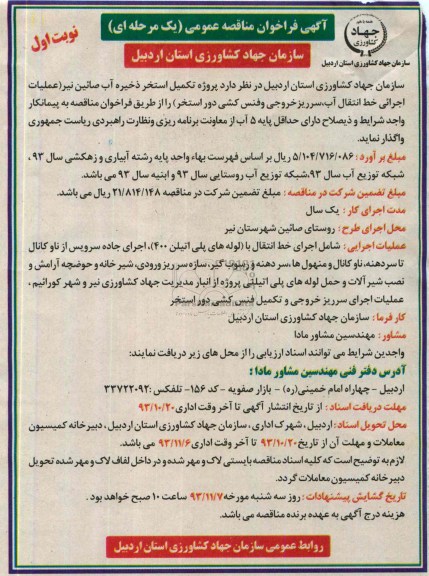 آگهی فراخوان مناقصه عمومی (یک مرحله ای)
نوبت اول
سازمان جهاد کشاورزی استان اردبیل
جهاد
کشاورزی
سازمان جهاد کشاورزی استان اردبیل
سازمان جهاد کشاورزی استان اردبیل در نظر دارد پروژه تکمیل استخر ذخیره آب صائین نیر(عملیات
اجرائی خط انتقال آب،سرریزخروجی وفنس کشی دور استخر) را از طریق فراخوان مناقصه به پیمانکار
واجد شرایط و ذیصلاح دارای حداقل پایه ۵ آب از معاونت برنامه ریزی ونظارت راهبردی ریاست جمهوری
واگذار نماید.
مبلغ برآورد : ۵/۱۰۴/۷۱۶/۰۸۶ ریال بر اساس فهرست بهاء واحد پایه رشته آبیاری و زهکشی سال ۹۳ ،
شبکه توزیع آب سال ۹۳،شبکه توزیع آب روستایی سال ۹۳ و ابنیه سال ۹۳ می باشد.
مبلغ تضمین شرکت در مناقصه : مبلغ تضمین شرکت در مناقصه ۲۱/۸۱۴/۱۴۸ ریال می باشد.
مدت اجرای کار : یک سال
محل اجرای طرح : روستای صائین شهرستان نیر
عملیات اجرایی : شامل اجرای خط انتقال با (لوله های پلی اتیلن ۴۰۰)، اجرای جاده سرویس از ناو کانال
تا سردهنه، ناو کانال و منهول ها،سر دهنه و رسوب گیر، سازه سرریز ورودی، شیر خانه و حوضچه آرامش و
نصب شیر آلات و حمل لوله های پلی اتیلنی پروژه از انبار مدیریت جهاد کشاورزی نیر و شهر کورائیم ،
عملیات اجرای سرریز خروجی و تکمیل فنس کشی دور استخر
کارفرما : سازمان جهاد کشاورزی استان اردبیل
مشاور : مهندسین مشاور مادا
واجدین شرایط می توانند اسناد ارزیابی را از محل های زیر دریافت نمایند:
آدرس دفتر فنی مهندسین مشاور مادا :
اردبیل - چهارراه امام خمینی(ره) - بازار صفویه - کد ۱۵۶- تلفکس :۳۳۷۲۲۰۹۲
مهلت دریافت اسناد : از تاریخ انتشار آگهی تا آخر وقت اداری ۹۳/۱۰/۲۰
محل تحویل اسناد: اردبیل، شهرک اداری ، سازمان جهاد کشاورزی استان اردبیل ، دبیرخانه کمیسیون
معاملات و مهلت آن از تاریخ ۹۳/۱۰/۲۰ تا آخر وقت اداری ۹۳/۱۱/۶ می باشد.
لازم به توضیح است که کلیه اسناد مناقصه بایستی لاک و مهر شده و در داخل لفاف لاک و مهر شده تحویل
دبیرخانه کمیسیون معاملات گردد.
تاریخ گشایش پیشنهادات : روز سه شنبه مورخه ۹۳/۱۱/۷ ساعت ۱۰ صبح خواهد بود .
هزینه درج آگهی به عهده برنده مناقصه می باشد.
روابط عمومی سازمان جهاد کشاورزی استان اردبیل